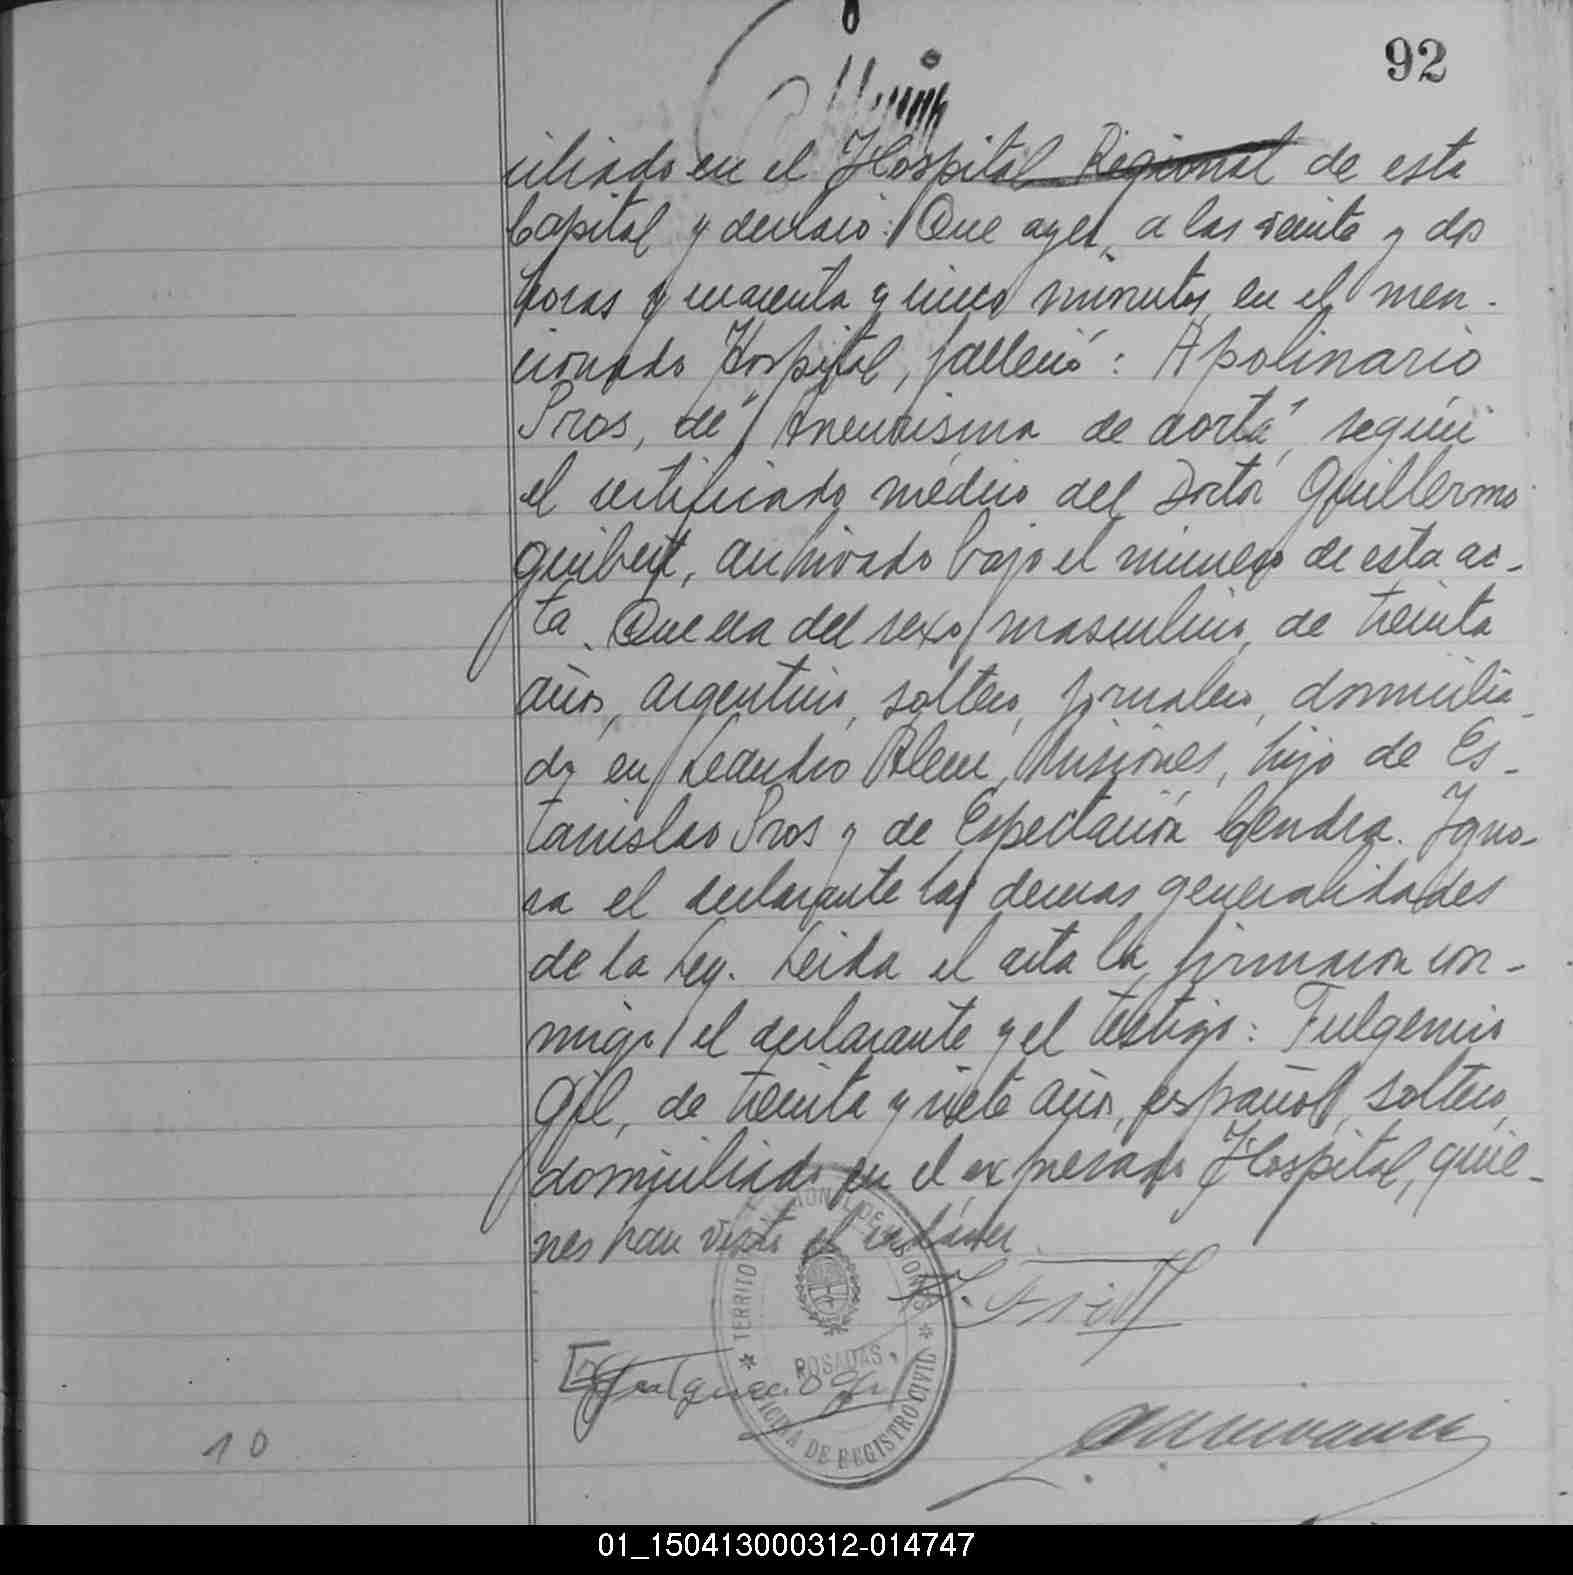 92
ciliado en el Hospital Regional de esta
Capital y declaró: Que ayer, a las veinte y dos
horas y cuarenta y cinco minutos, en el men-
cionado Hospital, falleció: Apolinario
Pros, de "Aneurisma de aorta", según
el certificado médico del Doctor Guillermo
Guibert, archivado bajo el número de esta ac-
ta. Que era del sexo masculino, de treinta
años, argentino, soltero, jornalero, domicilia-
do en Leandro Alem, Misiones, hijo de Es-
tanislao Pros y de Espectación Cendra. Igno-
ra el declarante las demas generalidades
de la Ley. Leida el acta la firmaron con-
migo el declarante y el testigo: Fulgencio
Gil, de treinta y siete años, español, soltero,
domiciliado en el expresado Hospital, quie-
nes han visto el cadáver.
TERRITORIO NACIONAL DE MISIONES
POSADAS
OFICINA DE REGISTRO CIVIL
Fulgencio Gil
10
01_150413000312-014747